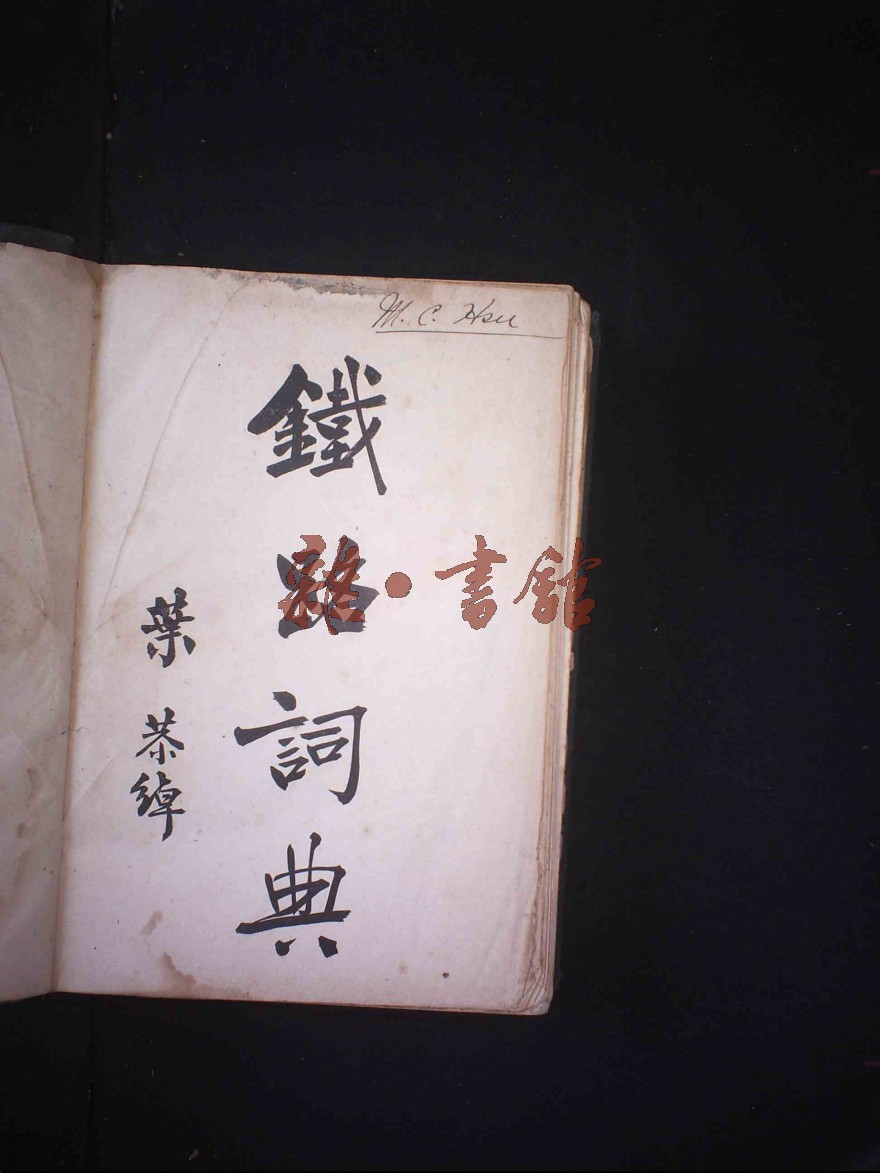 M. C. Hsu
鐵路詞典
葉恭綽
書舘